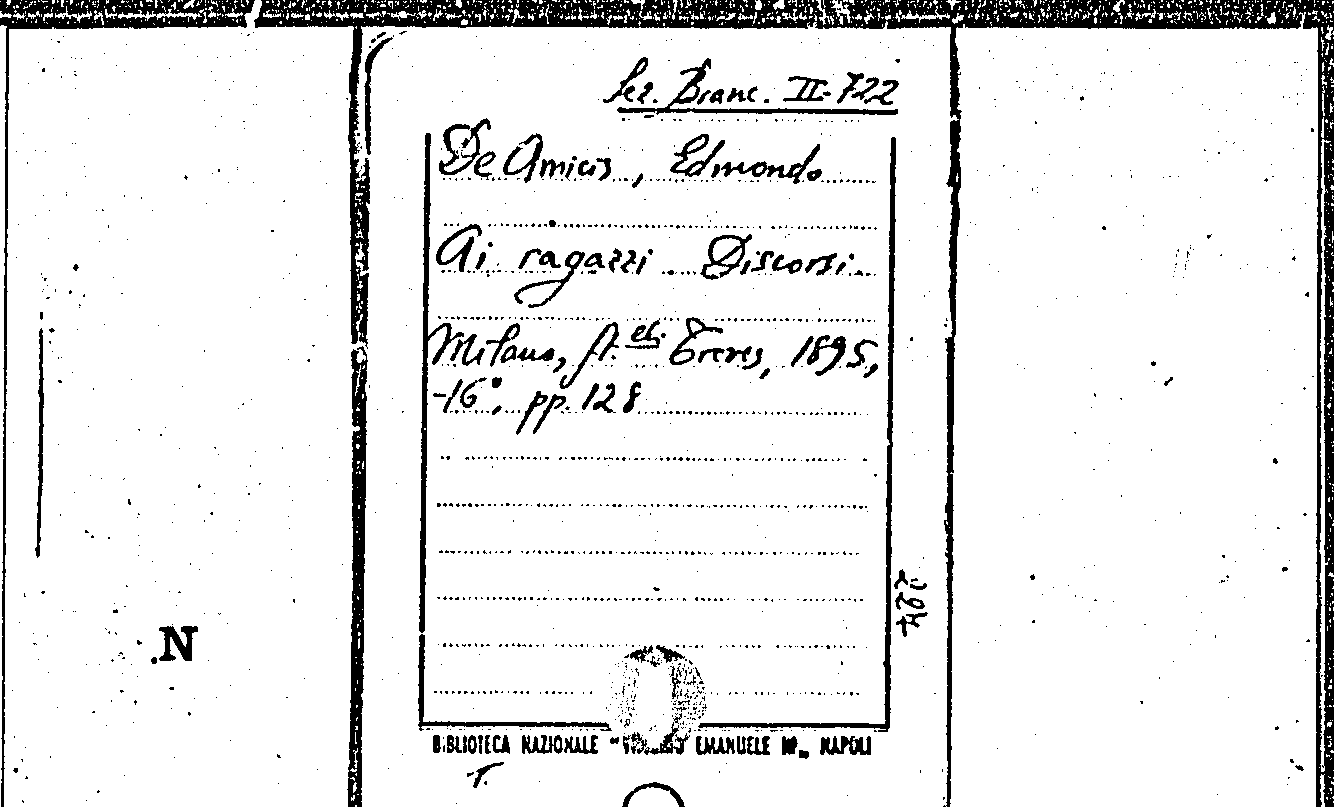 Sez. Branc. II-722
De Amicis, Edmondo
Ai ragazzi. Discorsi.
Milano, ft.eli Treves, 1895,
-16°, pp. 128
.N
BIBLIOTECA NAZIONALE " EMANUELE III„ NAPOLI
T.